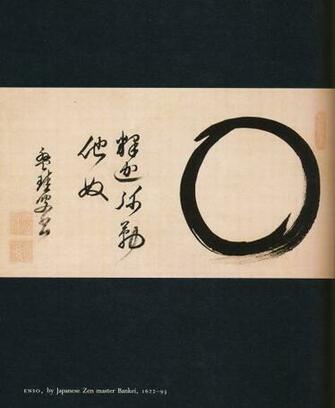 釋迦弥勒
他奴
ENSO, by Japanese Zen master Bankei, 1622–93